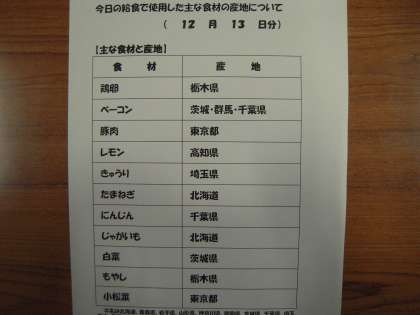 今日の給食で使用した主な食材の産地について
（ 12 月 13 日分）
【主な食材と産地】
食 材 産 地
鶏卵 栃木県
ベーコン 茨城・群馬・千葉県
豚肉 東京都
レモン 高知県
きゅうり 埼玉県
たまねぎ 北海道
にんじん 千葉県
じゃがいも 北海道
白菜 茨城県
もやし 栃木県
小松菜 東京都